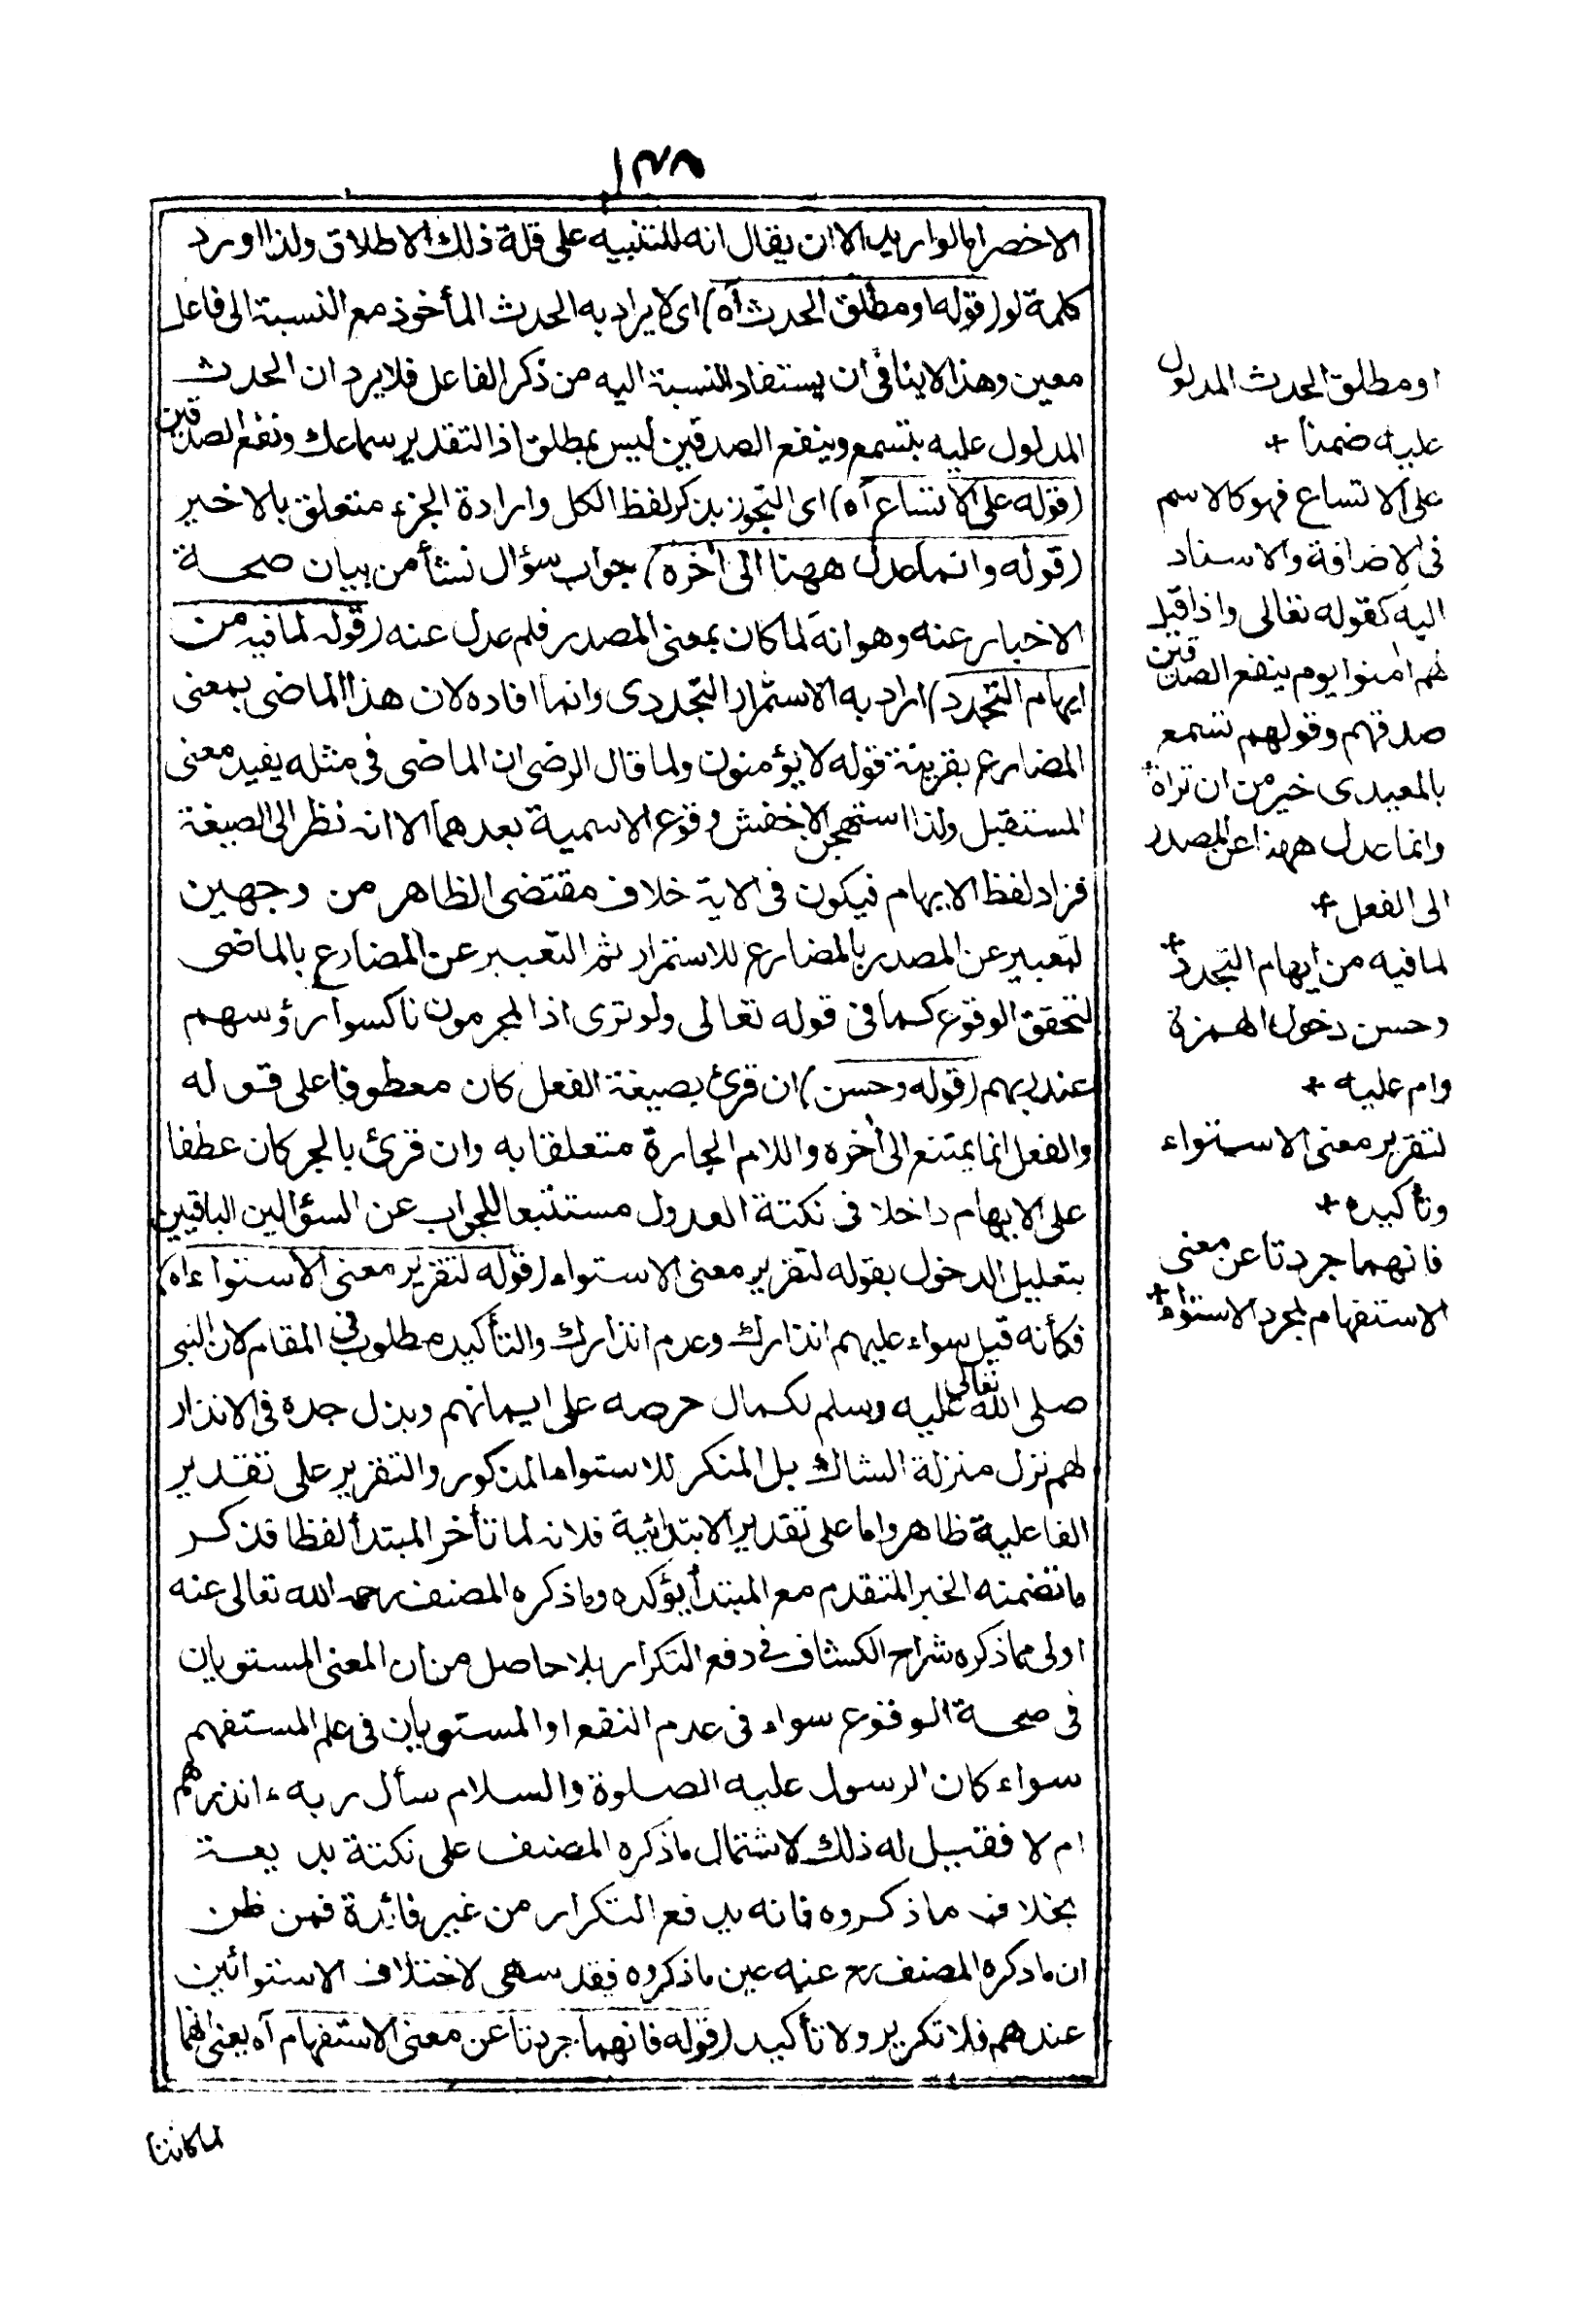 ١٣٨
الاخصر اما لو اريد الا ان يقال انه للتنبيه على قلة ذلك الاطلاق ولذا اورد
كلمة لو (قوله او مطلق الحدث آه) اى لا يراد به الحدث المأخوذ مع النسبة الى فاعل
معين وهذا لا ينافى ان يستفاد النسبة اليه من ذكر الفاعل فلا يرد ان الحدث
المدلول عليه بتسمع وينفع الصدقين ليس بمطلق اذ التقدير سماعك ونفع الصدقين
(قوله على الاتساع آه) اى التجوز بذكر لفظ الكل وارادة الجزء متعلق بالاخير
(قوله وانما عدل ههنا الى أخره) جواب سؤال نشأ من بيان صحة
الاخبار عنه وهو انه لما كان بمعنى المصدر فلم عدل عنه (قوله لما فيه من
ايهام التجدد) اراد به الاستمرار التجددى وانما افاده لان هذا الماضى بمعنى
المضارع بقرينة قوله لا يؤمنون ولما قال الرضى ان الماضى فى مثله يفيد معنى
المستقبل ولذا استهجن الاخفش وقوع الاسمية بعدهما الا انه نظر الى الصيغة
فزاد لفظ الايهام فيكون فى الاية خلاف مقتضى الظاهر من وجهين
لتعبير عن المصدر بالمضارع للاستمرار ثم التعبير عن المضارع بالماضى
لتحقق الوقوع كما فى قوله تعالى ولو ترى اذ المجرمون ناكسوا رؤسهم
عند ربهم (قوله وحسن) ان قرئ بصيغة الفعل كان معطوفا على قوله
والفعل انما يمتنع الى أخره واللام الجارة متعلقا به وان قرئ بالجر كان عطفا
على الايهام داخلا فى نكتة العدول مستتبعا للجواب عن السؤالين الباقيين
بتعليل الدخول بقوله لتقرير معنى الاستواء (قوله لتقرير معنى الاستواء اه)
فكأنه قيل سواء عليهم انذارك وعدم انذارك والتأكيد مطلوب فى المقام لان النبى
صلى الله تعالى عليه وسلم لكمال حرصه على ايمانهم وبذل جده فى الانذار
لهم نزل منزلة الشاك بل المنكر للاستواء المذكور والتقرير على تقدير
الفاعلية ظاهر واما على تقدير الابتدائية فلانه لما تأخر المبتدأ لفظا فذكر
ما تضمنه الخبر المتقدم مع المبتدأ يؤكده وما ذكره المصنف رحمه الله تعالى عنه
اولى مما ذكره شراح الكشاف فى دفع التكرار بلا حاصل من ان المعنى المستويان
فى صحة الوقوع سواء فى عدم النفع او المستويان فى علم المستفهم
سواء كان الرسول عليه الصلوة والسلام سأل ربه ءانذرهم
ام لا فقيل له ذلك لاشتمال ما ذكره المصنف على نكتة بديعة
بخلاف ما ذكروه فانه يدفع التكرار من غير فائدة فمن ظن
ان ما ذكره المصنف رح عنه عين ما ذكروه فقد سهى لاختلاف الاستوائين
عندهم فلا تكرير ولا تأكيد (قوله فانهما جردتا عن معنى الاستفهام آه يعنى انهما
لما كانتا
او مطلق الحدث المدلول
عليه ضمنا +
على الاتساع فهو كالاسم
فى الاضافة والاسناد
اليه كقوله تعالى واذا قيل
لهم أمنوا يوم ينفع الصدقين
صدقهم وقولهم تسمع
بالمعيدى خير من ان تراه +
وانما عدل ههنا عن المصدر
الى الفعل +
لما فيه من ايهام التجدد +
وحسن دخول الهمزة
وام عليه +
لتقرير معنى الاستواء
وتأكيده +
فانهما جردتا عن معنى
الاستفهام لمجرد الاستواء +